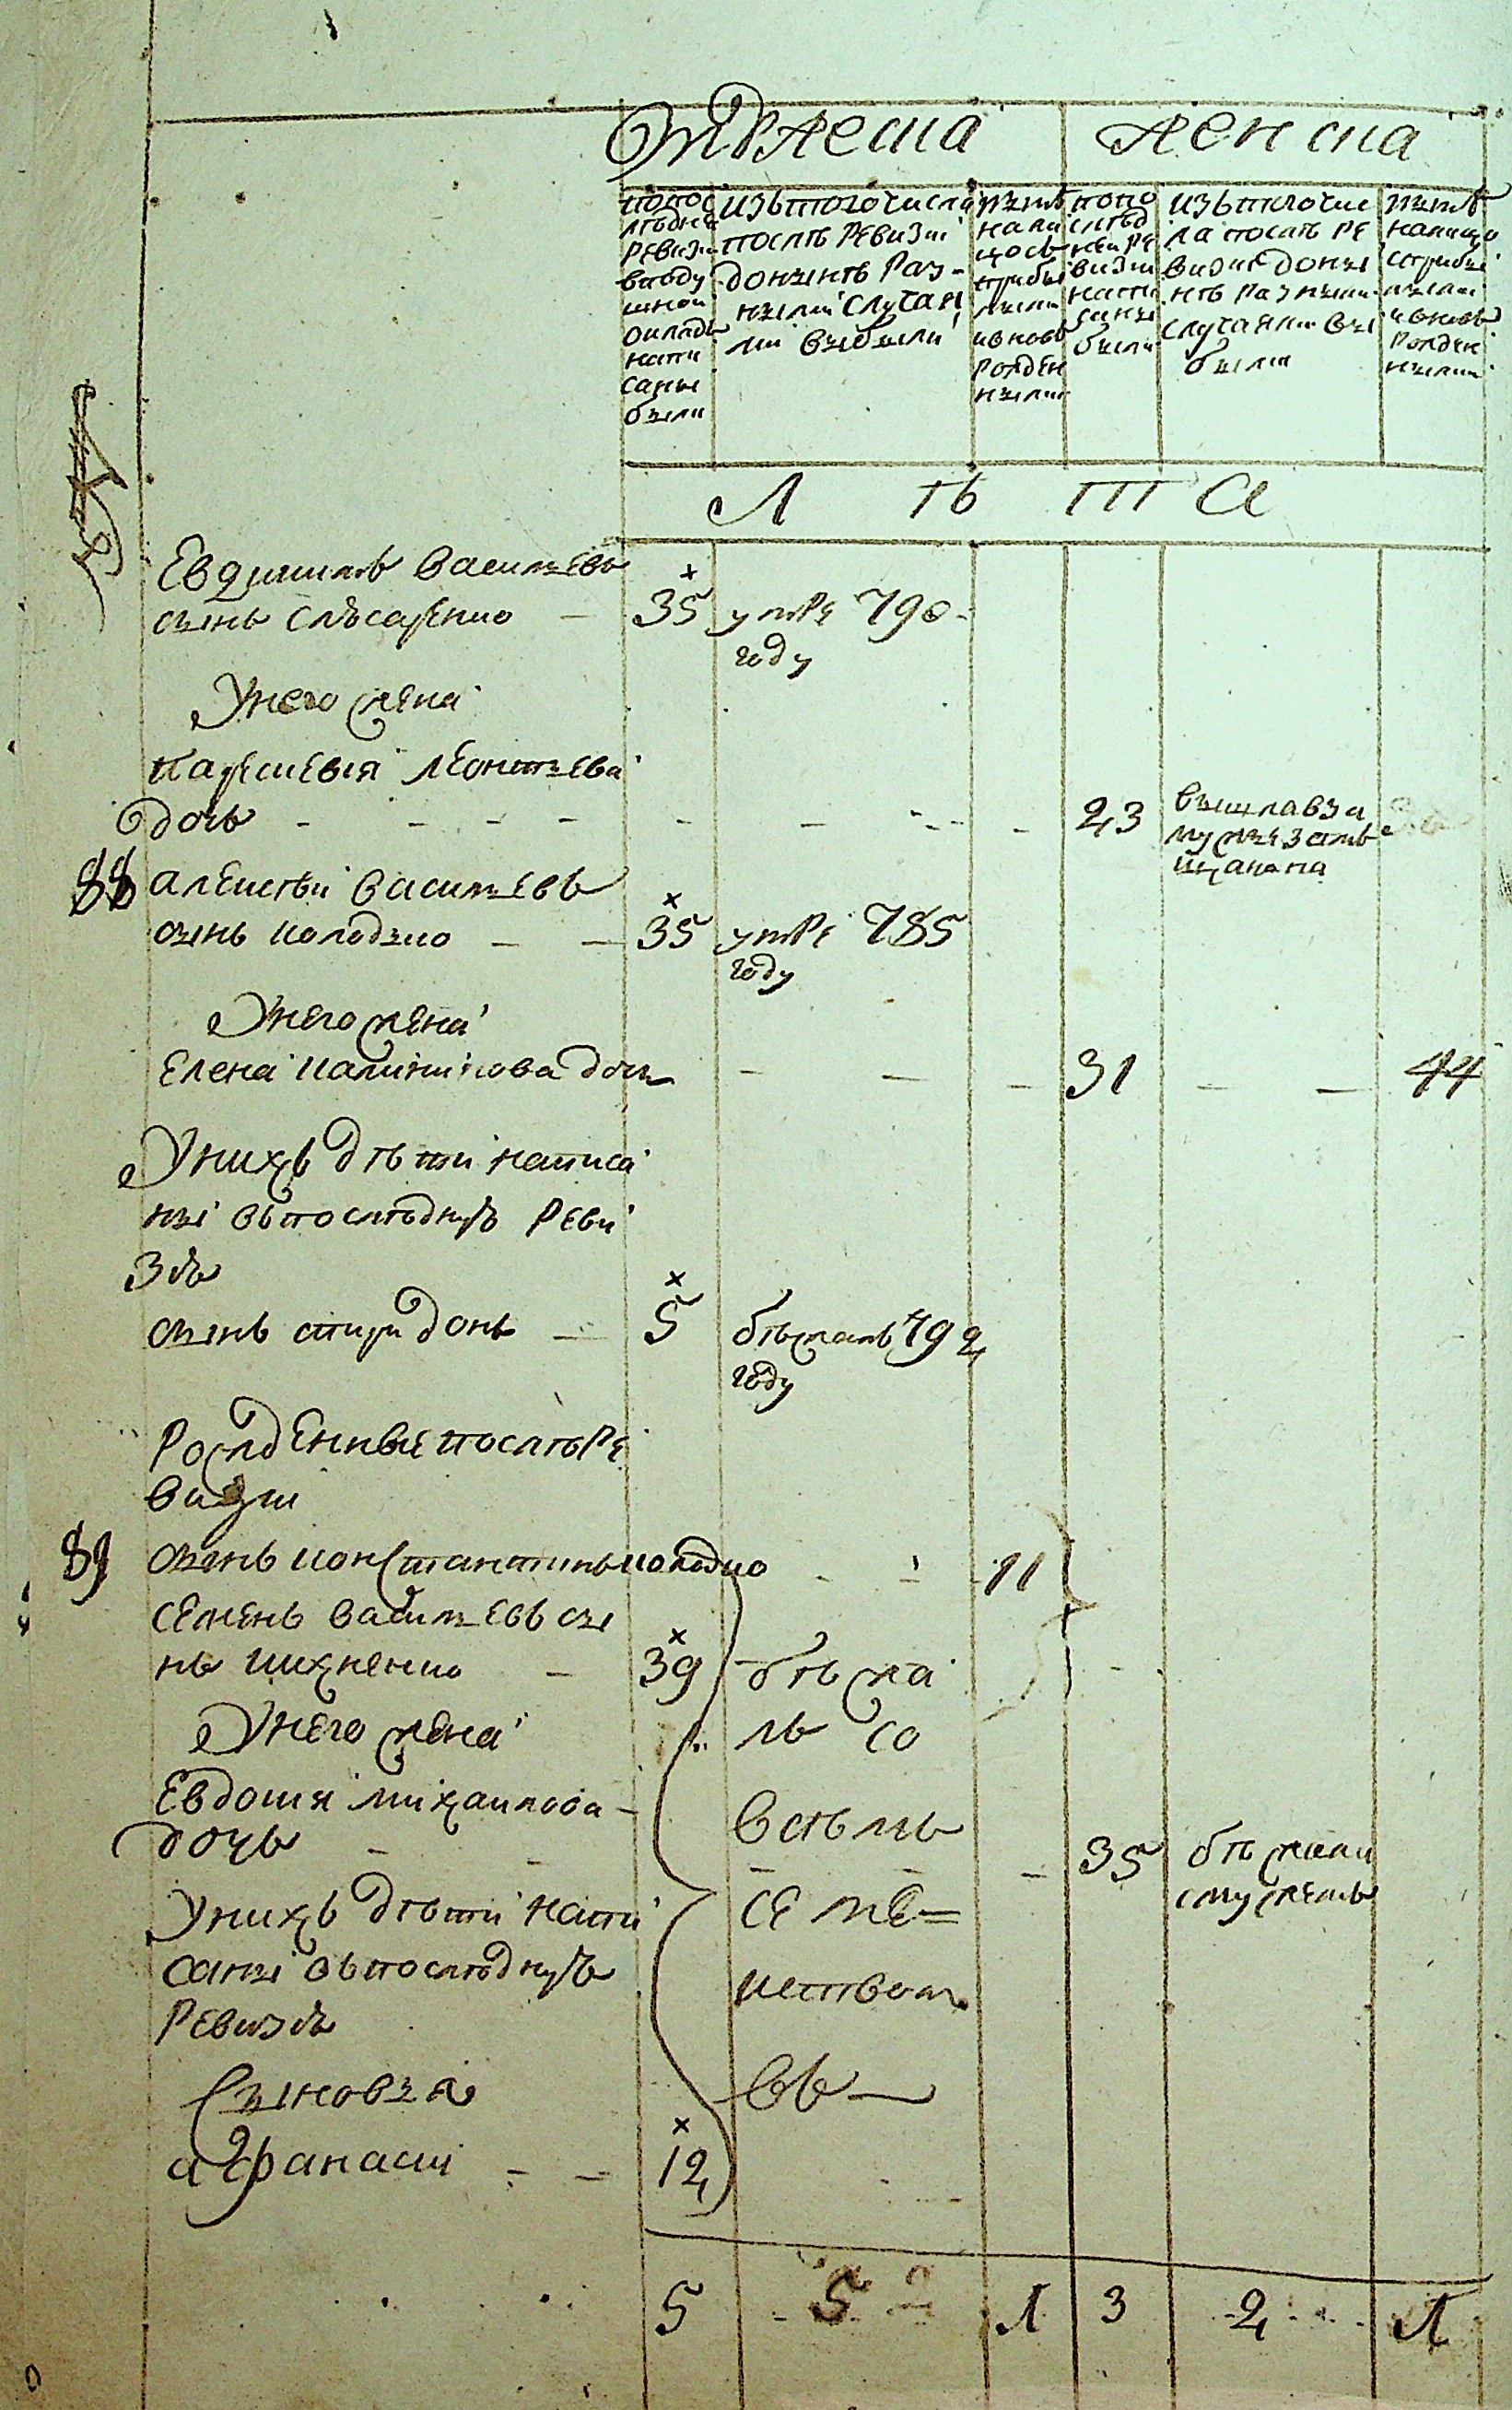 Мужеска
женска
попос
ледней
Ревизи
вподу
шной
окладъ
напи
саны
были
изътого числа
послѣ Ревизiи
донынѣ Раз-
ными случая
ми выбыли
нынѣ
нали
цось
прибы
лыми
ивновь
рожден
ными
попо
слѣд
ней Ре
визии
напи
саны
были
изътого чис
ла послѣ Ре
визии доны
нѣ разными
случаями вы
были
нынѣ
налицо
сприбы
лыми
ивновь
рожден
ными
Л ѣ т а
Евдокимъ Васильевъ
сынъ Слѣсаренко 35 умре 790-
году
Унего жена
Парасковiя Леонтьева
дочь 23 вышлавза
мужъ
88 Алексѣй Васильевъ
сынъ Колодько 35 умре 785
году
Унего жена
Елена Калиникова дочь 31 44
Унихъ дѣти написа
ны въпослѣднуъ Реви
зѣъ
сынъ Спиридонъ 5 бѣжалъ 792
году
Рожденные послѣ Ре
визiи
89 сынъ Константинъ Колодко 11
Семенъ Васильевъ сы
нъ Кихненко 39 бѣжа
лъ со
Унего жена
Евдокия Михайлова
дочь 35 бѣжала
смужемъ
всѣмъ
Унихъ дѣти напи
саны въпослѣднуъ
Ревизѣъ
семе=
иством
въ
Сыновья
Афанасий 12
5 5 1 3 2 1